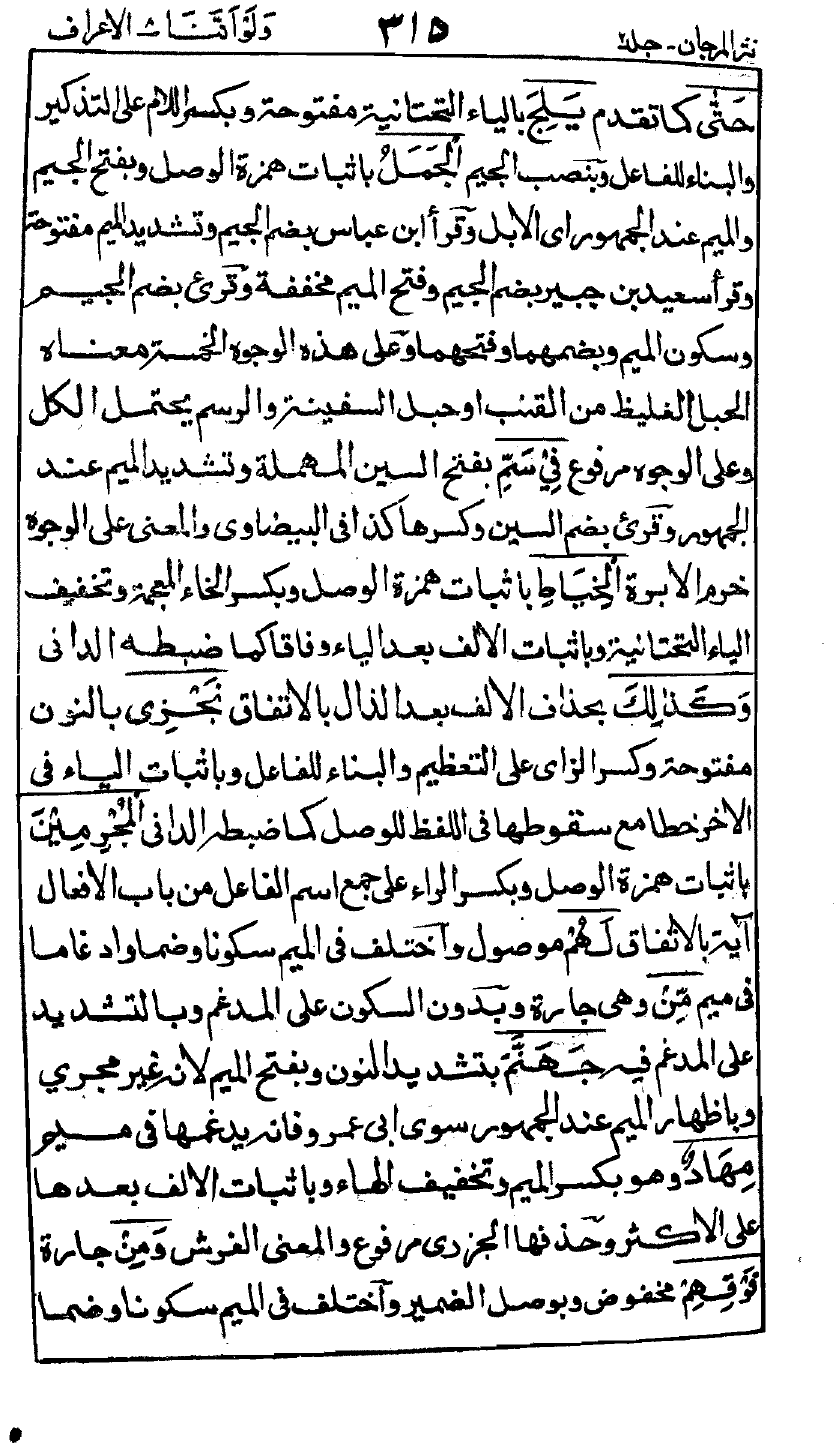 نثر المرجان - جلد٢ ٣١٥ ولو أننا ث الاعراف
حَتّٰى كما تقدم يَلِجَ بالياء التحتانية مفتوحة و بكسر اللام على التذكير
والبناء للفاعل وبنصب الجيم الْجَمَلُ باثبات همزة الوصل وبفتح الجيم
والميم عند الجمهور اى الابل وقرأ ابن عباس بضم الجيم وتشديد الميم مفتوحة
وقرأ سعيد بن جبير بضم الجيم وفتح الميم مخففة وقرئ بضم الجيم
وسكون الميم وبضمهما وفتحهما وعلى هذه الوجوه الخمسة معناه
الحبل الغليظ من القنب او حبل السفينة والرسم يحتمل الكل
وعلى الوجوه مرفوع فِيْ سَمِّ بفتح السين المهملة وتشديد الميم عند
الجمهور وقرئ بضم السين وكسرها كذا فى البيضاوى والمعنى على الوجوه
خرم الابرة الْخِيَاطِ باثبات همزة الوصل وبكسر الخاء المعجمة وتخفيف
الياء التحتانية وباثبات الالف بعد الياء وفاقا كما ضبطه الدانى
وَكَذٰلِكَ بحذف الالف بعد الذال بالاتفاق نَجْزِى بالنون
مفتوحة وكسر الزاى على التعظيم والبناء للفاعل وباثبات الياء فى
الاخر خطا مع سقوطها فى اللفظ للوصل كما ضبطه الدانى الْمُجْرِمِيْنَ
باثبات همزة الوصل وبكسر الراء على جمع اسم الفاعل من باب الافعال
آية بالاتفاق لَهُمْ موصول واختلف فى الميم سكونا وضما وادغاما
فى ميم مِّنْ وهى جارة وبدون السكون على المدغم وبالتشديد
على المدغم فيه جَهَنَّمَ بتشديد النون وبفتح الميم لانه غير مجري
وباظهار الميم عند الجمهور سوى ابى عمرو فانه يدغمها فى ميم
مِهَادٌ وهو بكسر الميم وتخفيف الهاء وباثبات الالف بعدها
على الاكثر وحذفها الجزرى مرفوع والمعنى الفرش وَمِنْ جارة
فَوْقِهِمْ مخفوض وبوصل الضمير واختلف فى الميم سكونا وضما